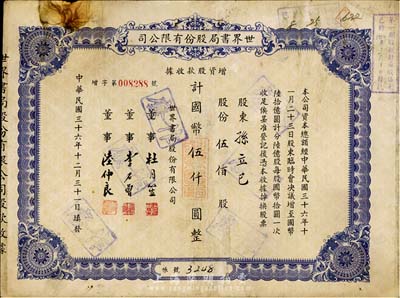 世界書局股份有限公司
增資股款收據
增字第008288號
本公司資本總額經中華民國三十六年十
一月二十三日股東臨時會決議增至國幣
陸拾億圓計分陸億股每股國幣拾圓一次
收足俟呈准登記後憑本收據掉換股票
股東 孫立己
股份 伍佰股
計國幣伍仟圓整
世界書局股份有限公司
董事 杜月笙
董事 李石曾
董事 陸仲良
中華民國三十六年十二月三十一日填發
帳號 3208
世界書局股份有限公司股款收據